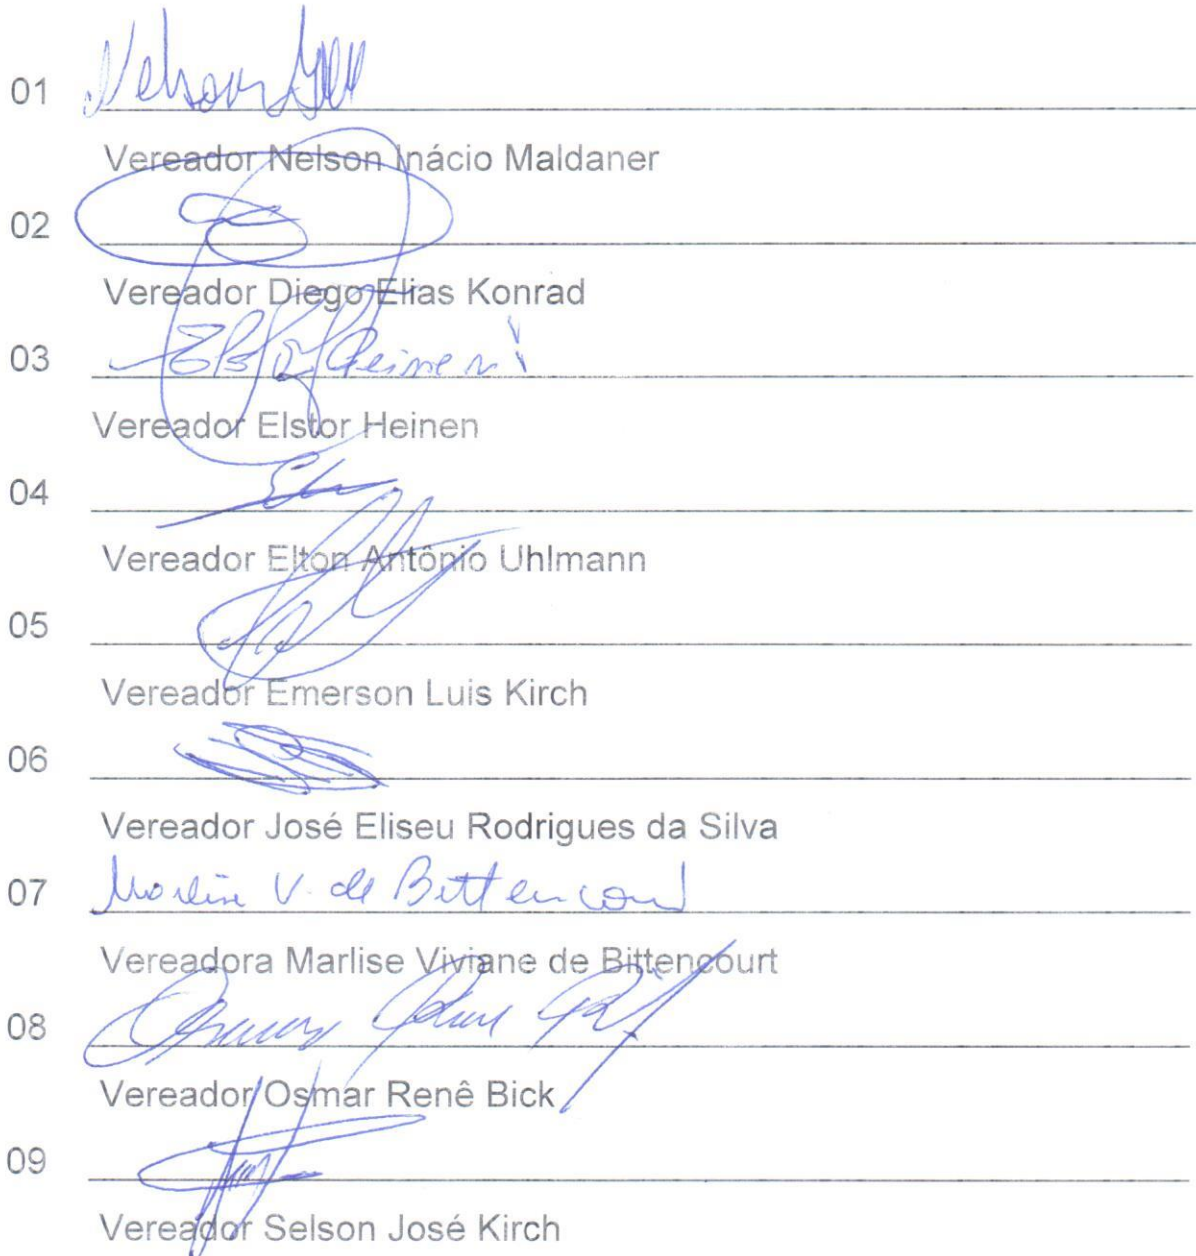 01 Nelson
Vereador Nelson Inácio Maldaner
02
Vereador Diego Elias Konrad
03 Elstor Heinen
Vereador Elstor Heinen
04
Vereador Elton Antônio Uhlmann
05
Vereador Emerson Luis Kirch
06
Vereador José Eliseu Rodrigues da Silva
07 Marlise V. de Bittencourt
Vereadora Marlise Viviane de Bittencourt
08 Osmar Renê Bick
Vereador Osmar Renê Bick
09
Vereador Selson José Kirch